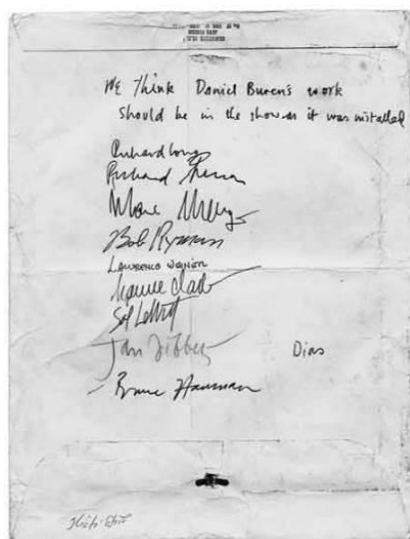 We think Daniel Buren's work
should be in the show as it was installed
Richard Long
Richard Serra
Mario Merz
Bob Ryman
LAWRENCE WEINER
Sol LeWitt
Jan Dibbets
Dias
Bruce Nauman